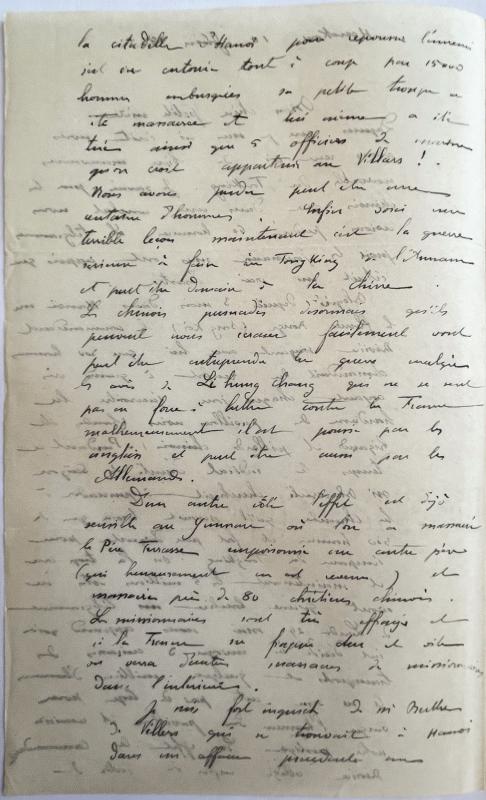 la citadelle d'Hanoï pour repousser l'ennemi
s'est vu entouré tout à coup par 15000
hommes embusqués sa petite troupe a
été massacrée et lui même a été
tué ainsi que 5 officiers de marine
qu'on croit appartenir au Villars !
Nous avons perdu peut être une
centaine d'hommes. Enfin voici une
terrible leçon maintenant c'est la guerre
à faire au Tongking à l'Annam
et peut être demain à la Chine.
Les chinois persuadés désormais qu'ils
peuvent nous écraser facilement vont
peut être entreprendre la guerre malgré
les avis de Li hung Chang qui ne se sent
pas en force à lutter contre la France
malheureusement il est poussé par les
anglais et peut être aussi par les
Allemands.
D'un autre côté l'effet est déjà
sensible au Yunnan où l'on a massacré
le Père Terrasse emprisonné un autre père
(qui heureusement en est revenu) et
massacré près de 80 chrétiens chinois.
Les missionnaires sont très effrayés et
si la France ne frappe dur et vite
on verra d'autres massacres de missionnaires
dans l'intérieur.
Je suis fort inquiet de Mr Berthe
de Villers qui se trouvait à Hanoï
dans une affaire précédente